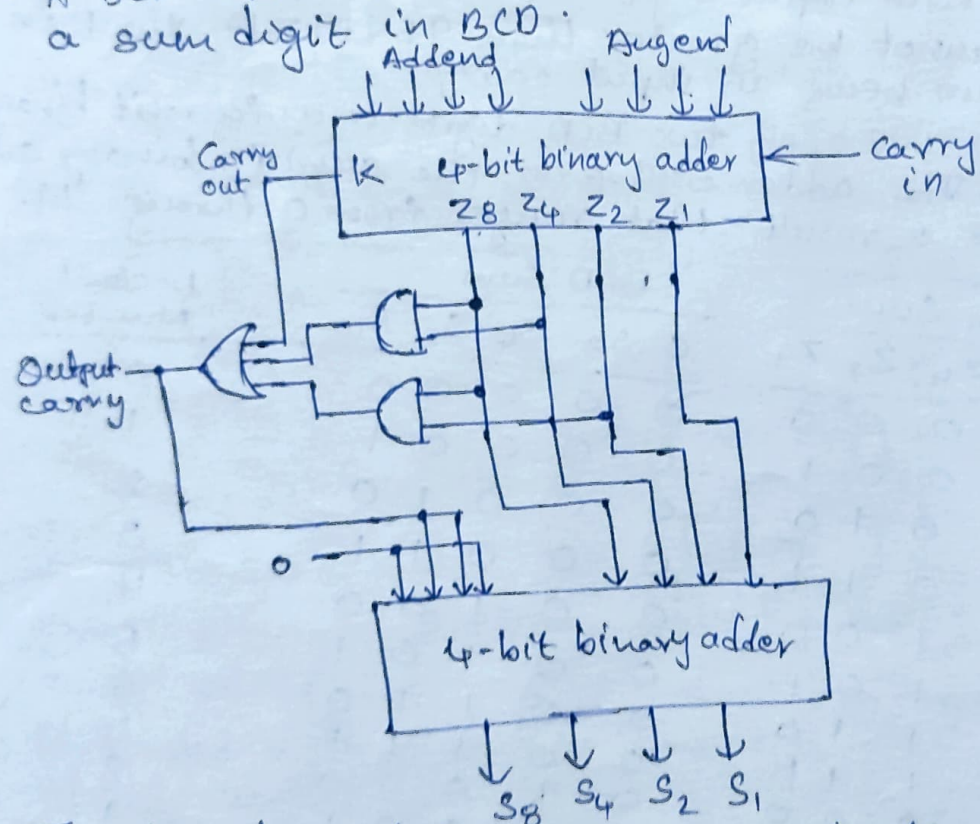 a sum digit in BCD.
Addend Augend
Carry out
K 4-bit binary adder
Carry in
Z8 Z4 Z2 Z1
Output carry
0
4-bit binary adder
S8 S4 S2 S1